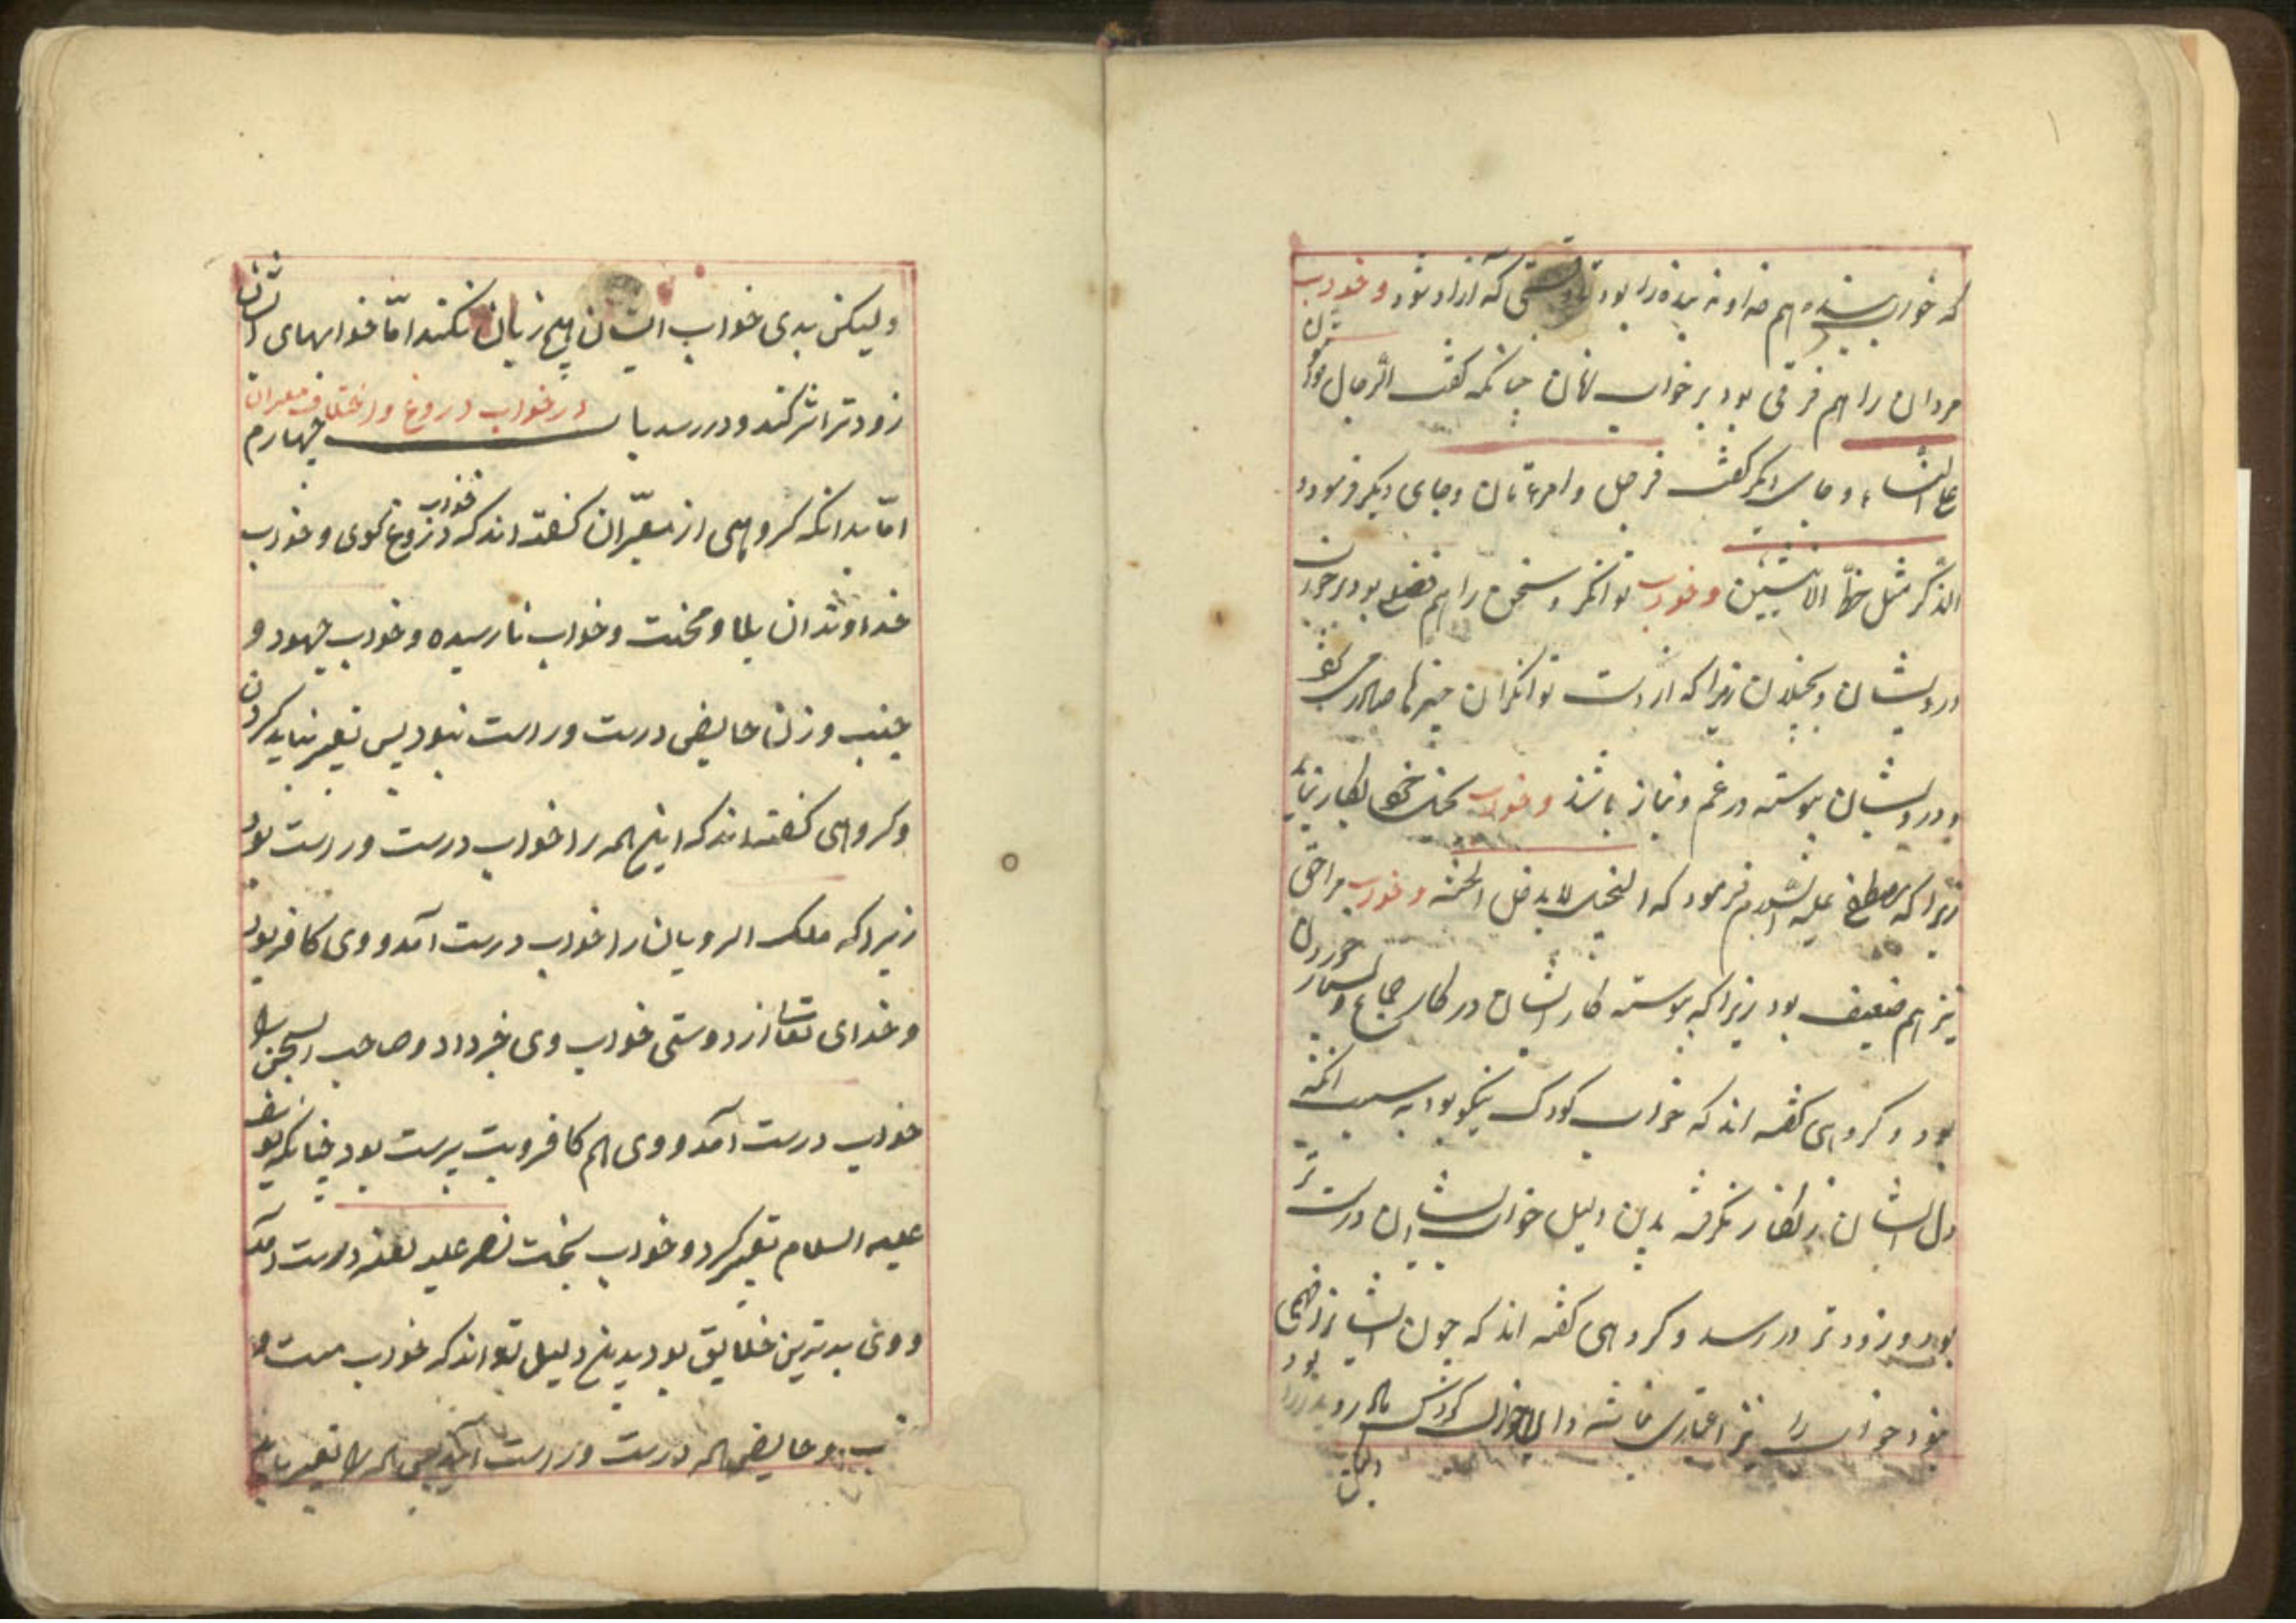 که خواب بنده هم خداوند بنده را بود تا وقتی که آزاد شود و خواب
مردان را هم فرقی بود بر خواب زنان چنانکه گفت الرجال قوامون
علی النساء و جای دیگر گفت فرجل و امرءتان و جای دیگر فرمود
الذکر مثل حظ الانثیین و خواب توانگر و سخی را هم فضل بود بر خواب
درویشان و بخیلان زیرا که از دست توانگران چیزها صادر می شود
و درویشان پیوسته در غم و نیاز باشند و خواب بخیل خود بکار نیاید
زیرا که مصطفی علیه السلام فرمود که البخیل لا یدخل الجنة و خواب
نیز هم ضعیف بود زیرا که پیوسته کار ایشان در کار جماع و بسیار خوردن
بود و کروهی گفته اند که خواب کودک نیکو بود به سبب انکه
دل ایشان زنکار نکرفته بدین دلیل خواب ایشان درست تر
بود و زود تر در رسد و کروهی گفته اند که چون ایشانرا فهمی
نبود خواب را نیز اعتباری نباشد
ولیکن بدی خواب ایشان هیچ زیان نکند امّا خوابهای ایشان
زودتر اثر کند و در رسد باب چهارم در خواب دروغ و اختلاف معبران
امّا بدانکه کروهی از معبّران کفته اند که خواب دروغ کوی و خواب
خداوندان بلا و محنت و خواب نارسیده و خواب جهود و
جنب و زن حایض درست و راست نبود پس تعبیر نباید کردن
وکروهی کفته اند که این همه را خواب درست و راست بود
زیرا که ملک الرویان را خواب درست آمد و وی کافر بود
و خدای تعالی از دوستی خواب وی خبر داد و صاحب السجن را
خواب درست آمد و وی هم کافر و بت پرست بود چنانکه یوسف
علیه السلام تعبیر کرد و خواب بخت نصر علیه لعنه درست آمد
و وی بدترین خلایق بود بدین دلیل تواند که خواب مست و
و حایض همه درست و راست آید پس همه را تعبیر باید